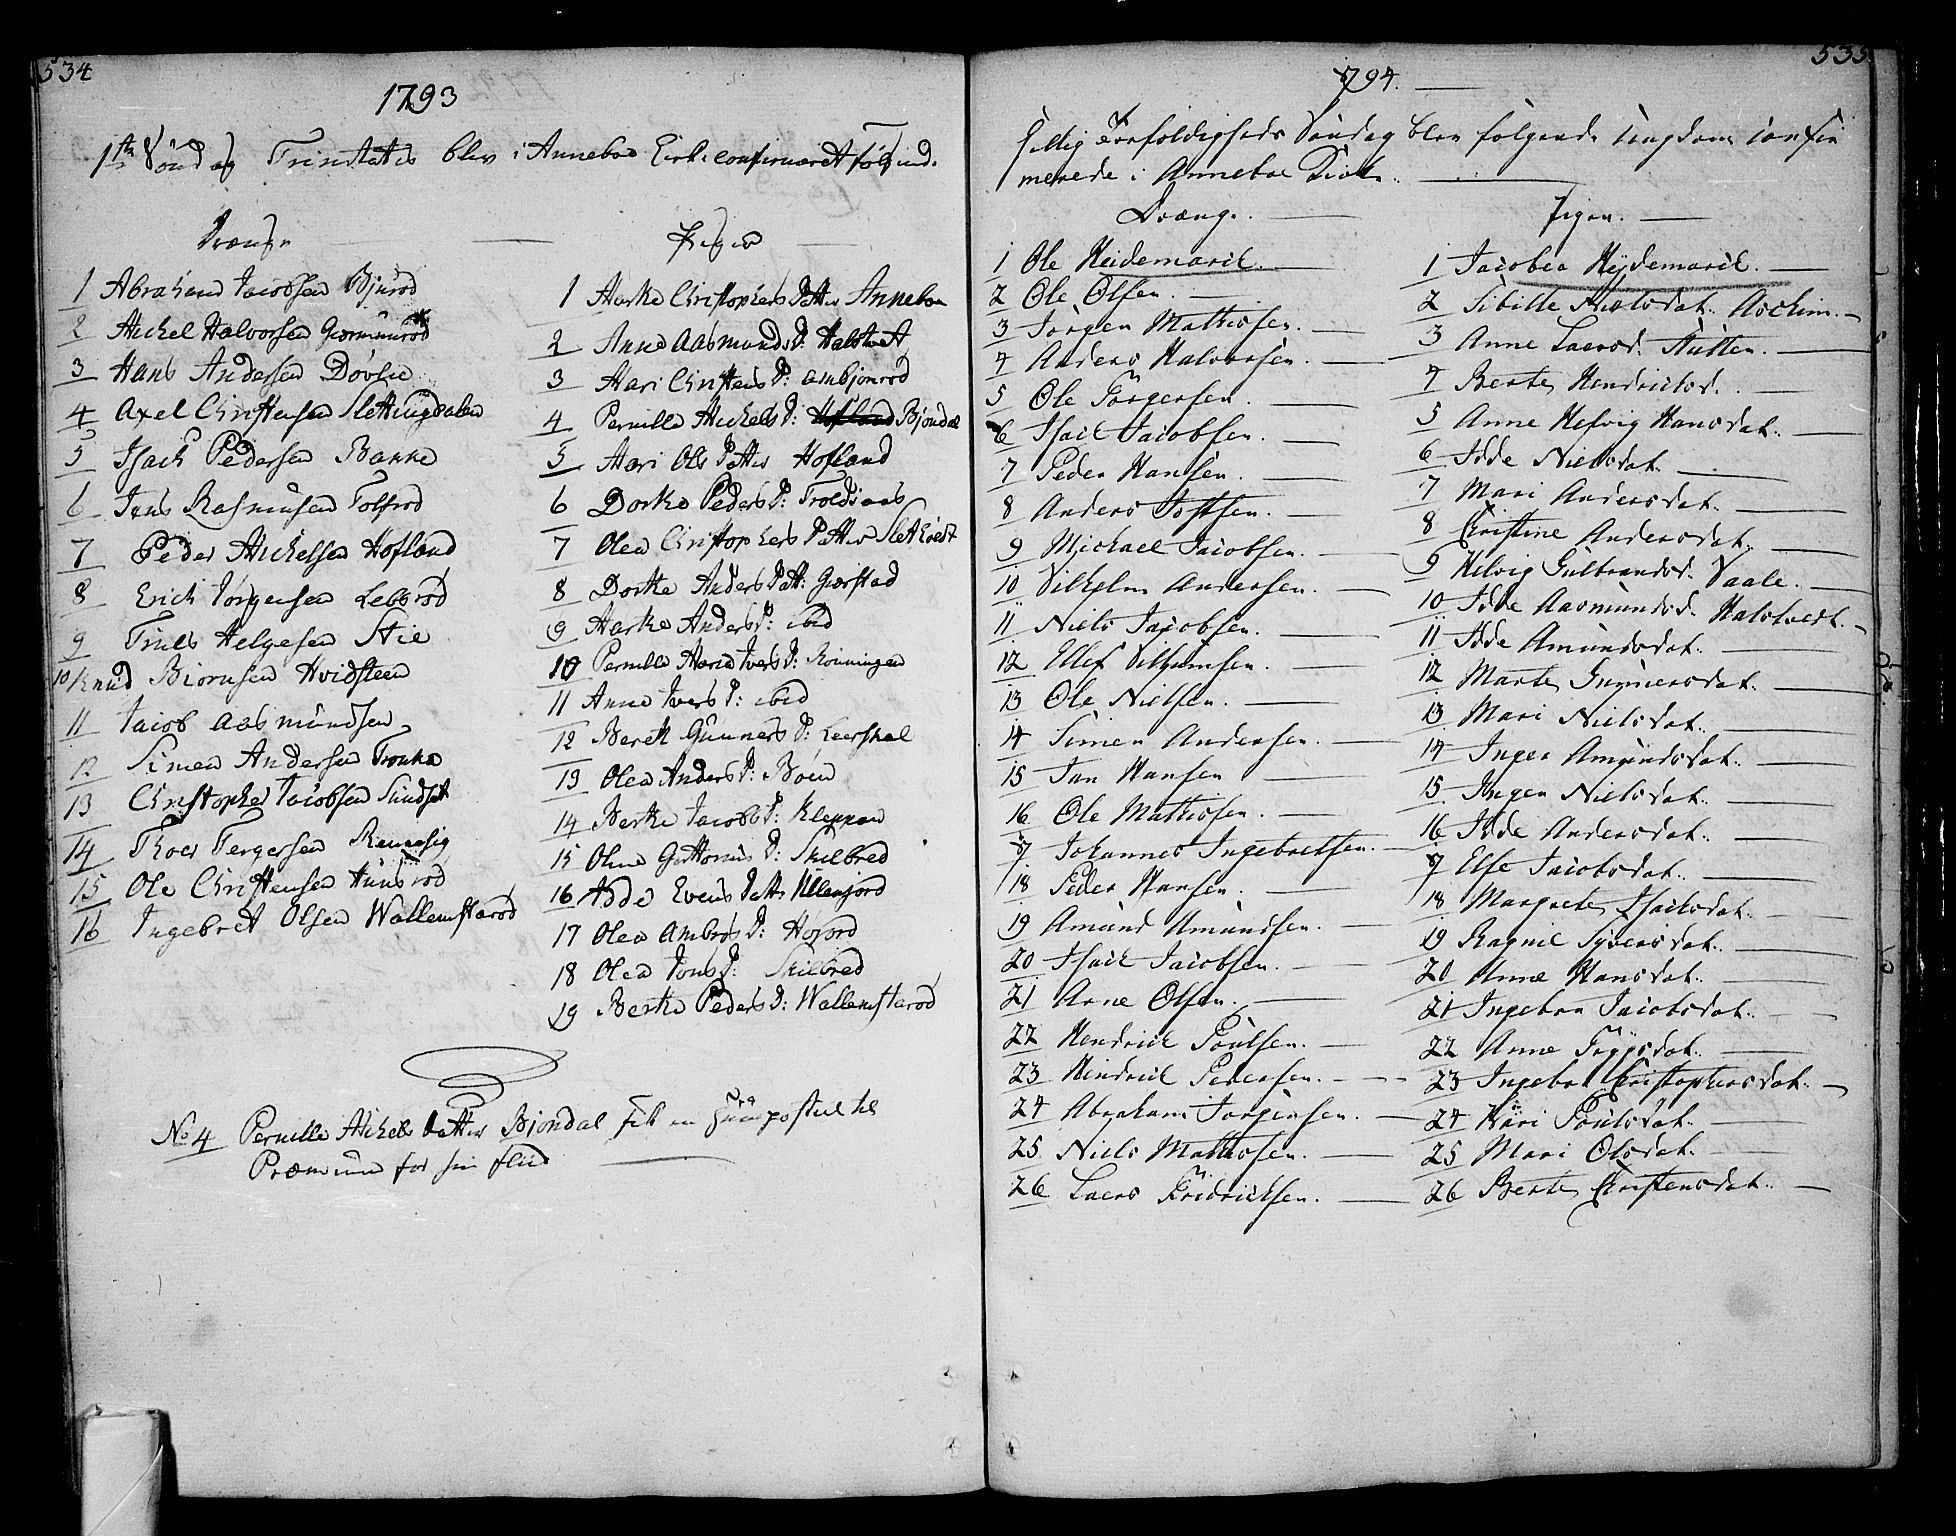 534
1793
1ste Søndag Trinitatis blev i Anneboe Circke confirmeret følgende.
Drænge
1 Abraham Jacobsen Bjurød
2 Michel Halvorsen
3 Hans Andersen Døvlie
4 Axel Christensen Slettingdalen
5 Isach Pedersen Bakke
6 Jens Rasmusen Tolfsrod
7 Peder Michelsen Hofland
8 Erich Jørgensen Lebsrød
9 Truls Helgesen Stie
10 Knud Biørnsen Hvidsteen
11 Jacob Aasmundsen
12 Simen Andersen Tronka
13 Christopher Jacobsen Sundset
14 Thoer Tergersen
15 Ole Christensen Hunsrød
16 Ingebret Olsen Wallemsrød
Piger
1 Marke Christophers Datter Anneboe
2 Anne Aasmunds D: Halstvet
3 Mari Christens D: Ambjonrod
4 Pernille Michels D: Hofland Bjøndal
5 Mari Ols Datter Hofland
6 Dorke Peders D: Troldsaas
7 Olea Christophers Datter Sletholdt
8 Dorke Anders Datt: Gierstad
9 Marke Anders D: ibid
10 Pernille Marie Ivers D: Rønningen
11 Anne Ivers D: ibid
12 Bereth Gunners D: Leerskal
13 Olea Anders D: Boen
14 Berke Jacobs D: Kleppan
15 Olene D: Skilbred
16 Adde Evens Datter Ullenfjord
17 Olea Ambrøs D: Høyjord
18 Olea Jons D: Skilbred
19 Berke Peders D: Wallemsrød
No 4 Pernille Michels Datter Bjøndal fik en Huuspostil til
Præmium for sin Fliid
535
1794.
hellig Trefoldigheds Søndag blev følgende Ungdom confir
merede i Anneboe Kirke.
Drænge.
1 Ole Heidemarck.
2 Ole Olsen.
3 Jörgen Mathisen.
4 Anders Halvorsen.
5 Ole Jörgensen.
6 Isaic Jacobsen.
7 Peder Hansen.
8 Anders Jostsen.
9 Michael Jacobsen.
10 Vilhelm Andersen.
11 Niels Jacobsen.
12 Ellef Vilhumsen.
13 Ole Nielsen.
14 Simen Andersen.
15 Jan Hansen
16 Ole Mathisen.
17 Johannes Ingebretsen.
18 Peder Hansen.
19 Amund Amundsen.
20 Isaic Jacobsen.
21 Arne Olsen.
22 Hendrick Poulsen.
23 Hindrick Pedersen.
24 Abraham Jørgensen.
25 Niels Mathisen.
26 Laers Fridricksen.
Pigen.
1 Jacobea Heydemarck.
2 Sibille Nielsdat. Aschim.
3 Anne Laersd. Sutten.
4 Berte Hendricksd.
5 Anne Hesvig Hansdat.
6 Idde Nielsdat.
7 Mari Andersdat.
8 Christine Andersdat.
9 Helvig Gulbrandsd. Vaale.
10 Idde Aasmundsd. Halstvedt.
11 Idde Amundsdat.
12 Marte Gunnersdat.
13 Mari Nielsdat.
14 Inger Amundsdat.
15 Ingen Nielsdat.
16 Idde Andersdat.
17 Else Jacobsdat.
18 Margrete Isaicsdat.
19 Ragnil Syversdat.
20 Anne Hansdat.
21 Ingebor Jacobsdat.
22 Anne Tryggsdat.
23 Ingebor Christophersdat.
24 Kari Poulsdat.
25 Mari Olsdat.
26 Berte Christensdat.